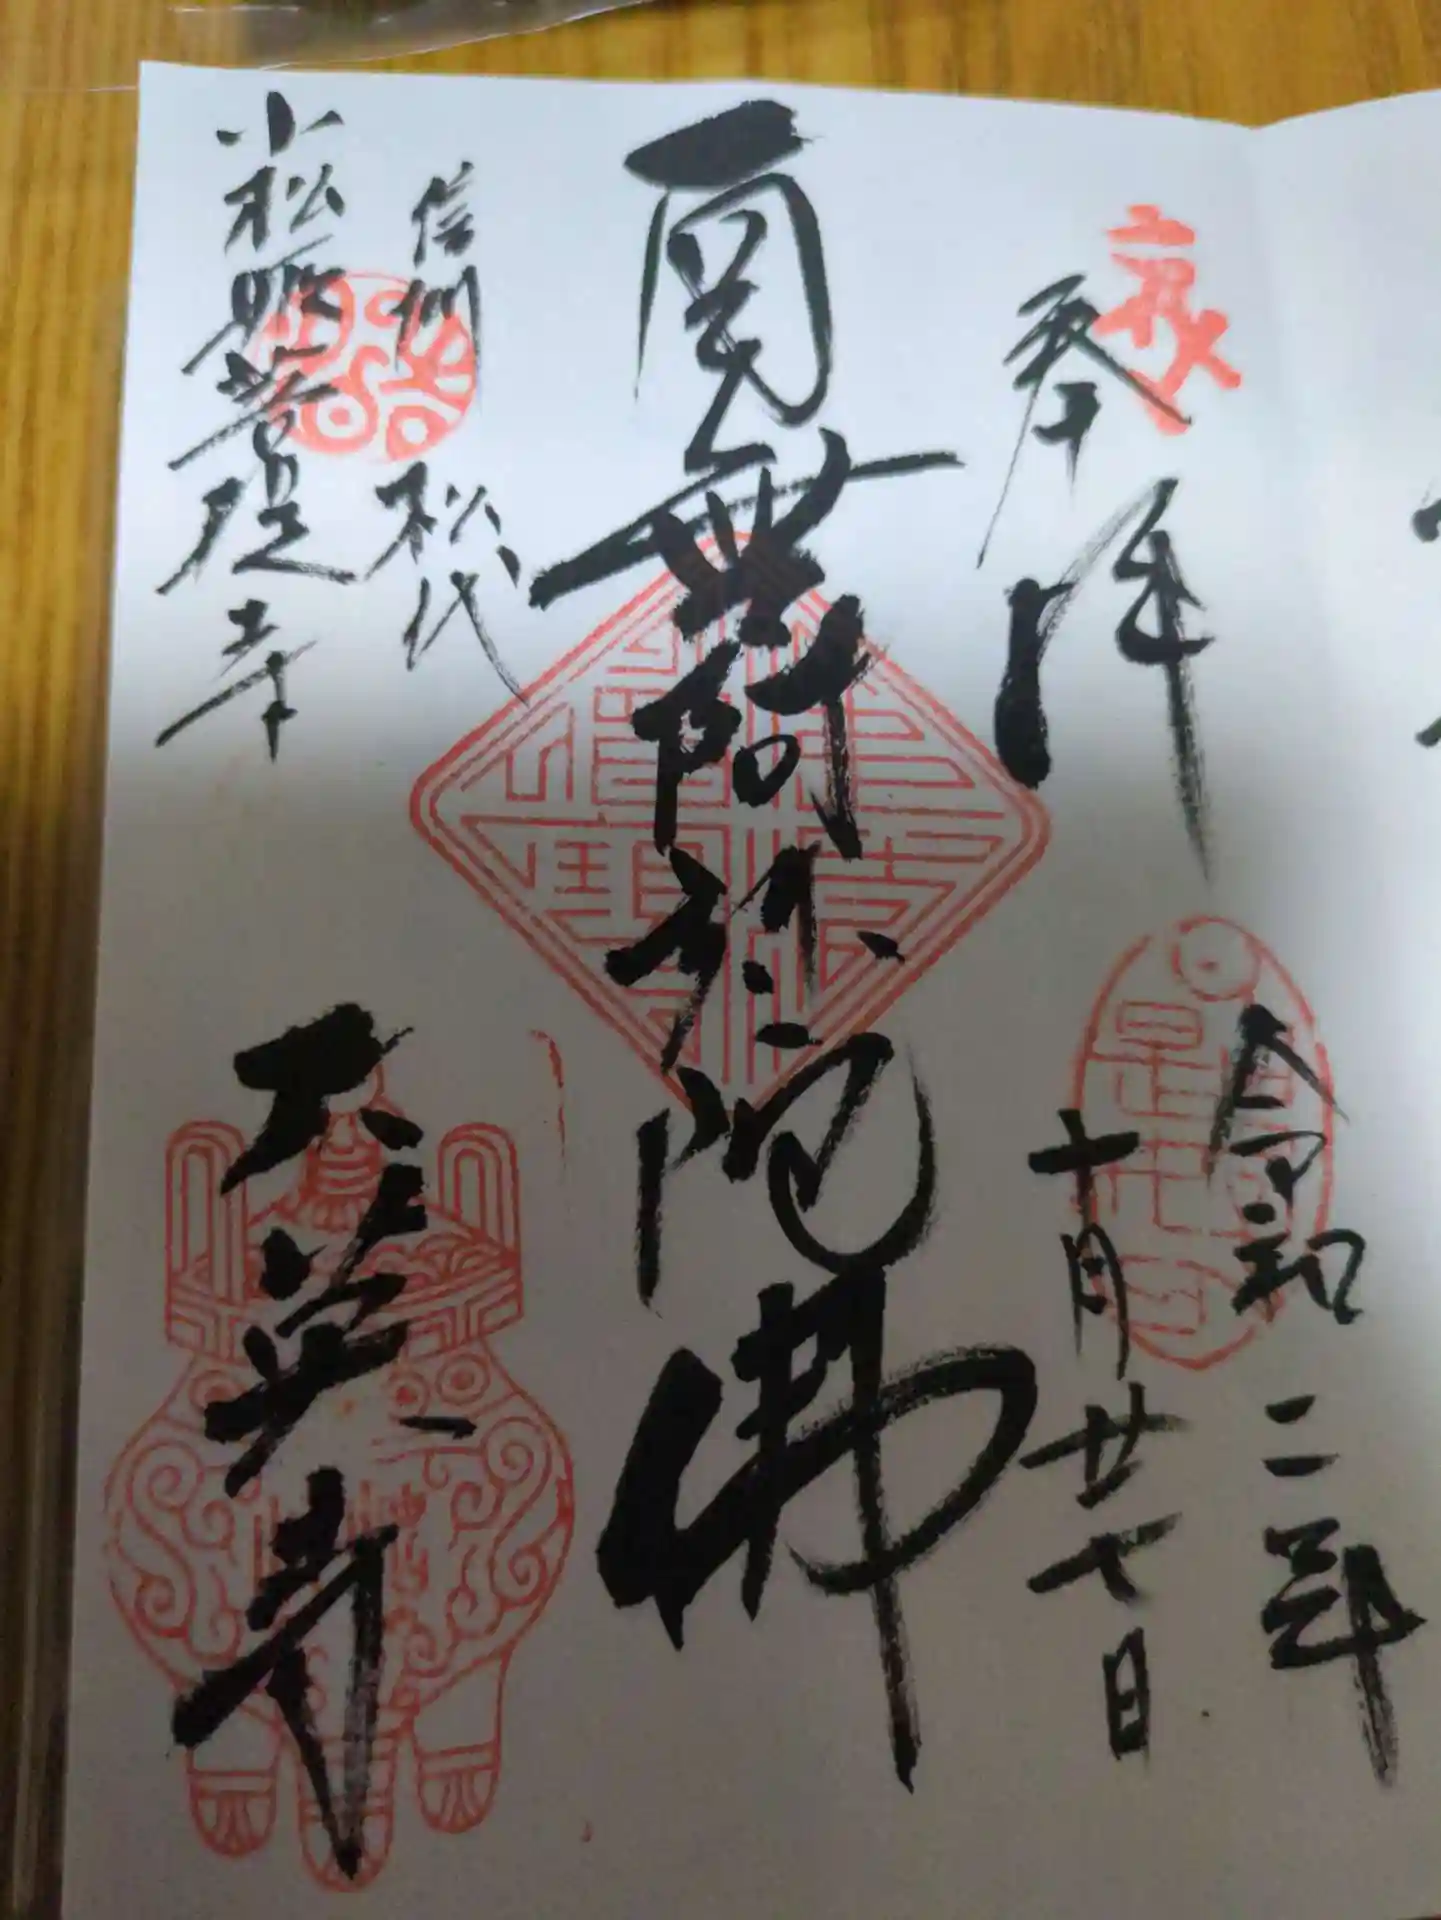 奉拝
令和二年
十月廿七日
南無阿弥陀佛
信州 松代
小松姫菩提寺
大英寺